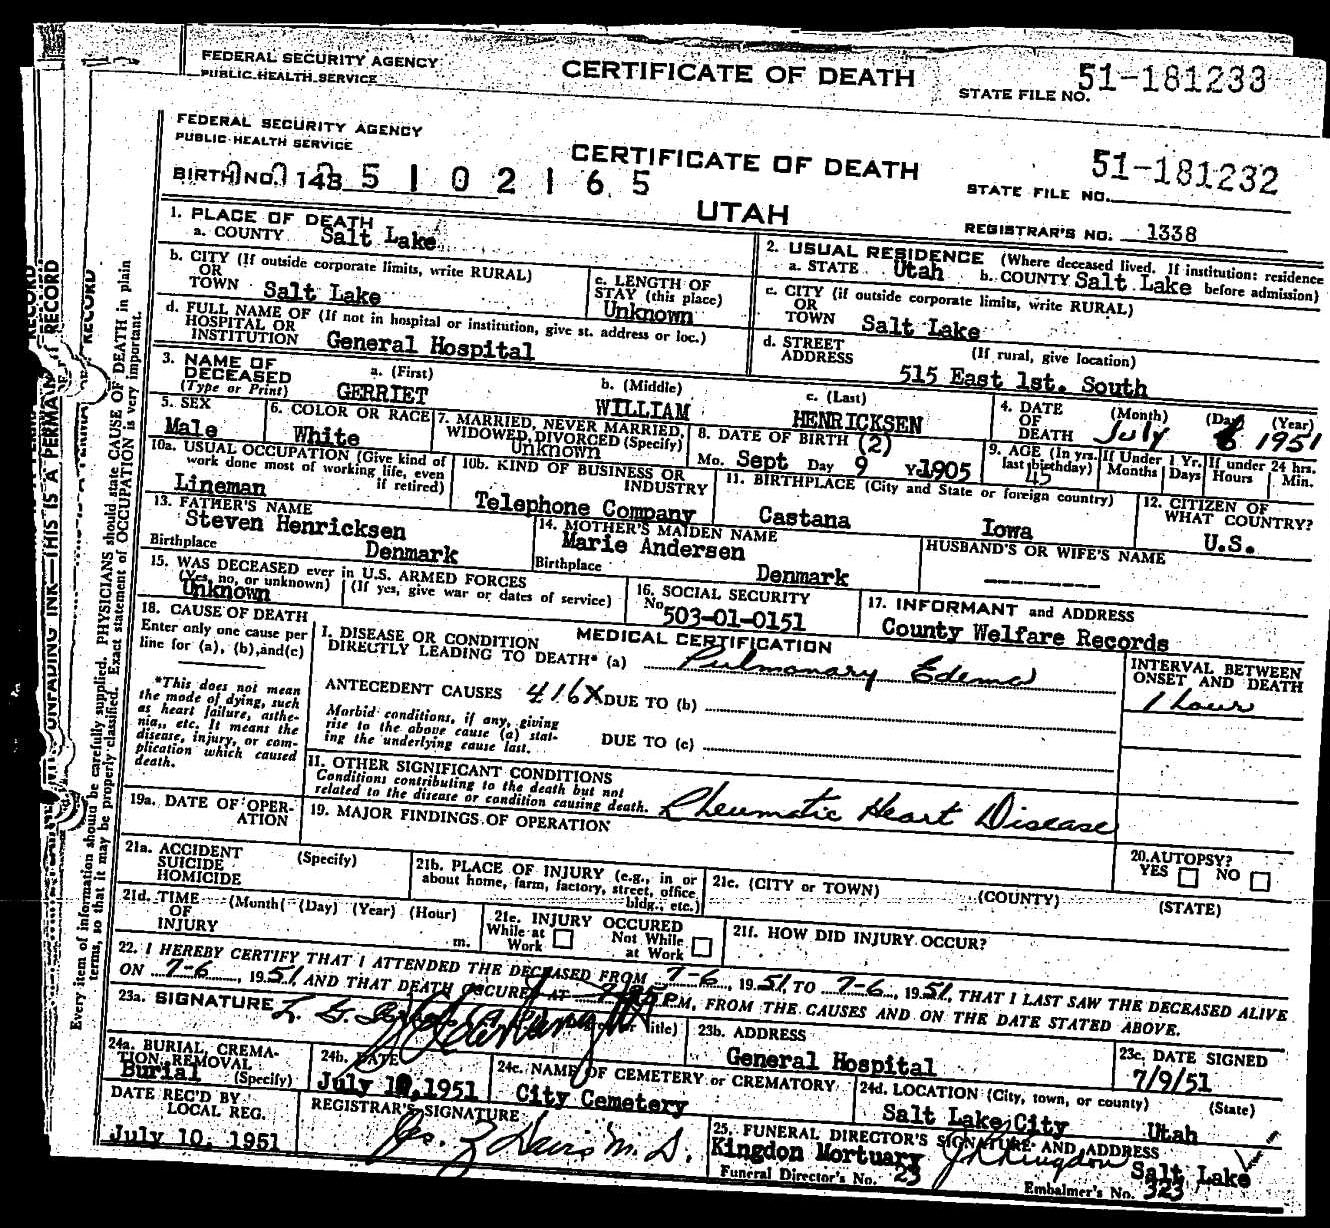 FEDERAL SECURITY AGENCY
PUBLIC HEALTH SERVICE
CERTIFICATE OF DEATH
STATE FILE NO. 51-181233
FEDERAL SECURITY AGENCY
PUBLIC HEALTH SERVICE
CERTIFICATE OF DEATH
STATE FILE NO. 51-181232
BIRTH NO. 143
5 1 0 2 1 6 5
UTAH
REGISTRAR'S NO. 1338
1. PLACE OF DEATH
a. COUNTY Salt Lake
2. USUAL RESIDENCE (Where deceased lived. If institution: residence
a. STATE Utah b. COUNTY Salt Lake before admission)
b. CITY (If outside corporate limits, write RURAL)
OR
TOWN Salt Lake
c. LENGTH OF
STAY (this place)
Unknown
c. CITY (if outside corporate limits, write RURAL)
OR
TOWN Salt Lake
d. FULL NAME OF (If not in hospital or institution, give st. address or loc.)
HOSPITAL OR
INSTITUTION General Hospital
d. STREET (If rural, give location)
ADDRESS
515 East 1st. South
3. NAME OF
DECEASED
(Type or Print)
a. (First)
GERRIET
b. (Middle)
WILLIAM
c. (Last)
HENRICKSEN
4. DATE (Month) (Day) (Year)
OF
DEATH July 6 1951
5. SEX
Male
6. COLOR OR RACE
White
7. MARRIED, NEVER MARRIED,
WIDOWED, DIVORCED (Specify)
Unknown
8. DATE OF BIRTH (2)
Mo. Sept Day 9 Yr. 1905
9. AGE (In yrs.
last birthday)
45
If Under 1 Yr.
Months Days
If under 24 hrs.
Hours Min.
10a. USUAL OCCUPATION (Give kind of
work done most of working life, even
if retired)
Lineman
10b. KIND OF BUSINESS OR
INDUSTRY
Telephone Company
11. BIRTHPLACE (City and State or foreign country)
Castana Iowa
12. CITIZEN OF
WHAT COUNTRY?
U.S.
13. FATHER'S NAME
Steven Henricksen
Birthplace Denmark
14. MOTHER'S MAIDEN NAME
Marie Andersen
Birthplace Denmark
HUSBAND'S OR WIFE'S NAME
15. WAS DECEASED ever in U.S. ARMED FORCES
(Yes, no, or unknown) (If yes, give war or dates of service)
Unknown
16. SOCIAL SECURITY
No. 503-01-0151
17. INFORMANT and ADDRESS
County Welfare Records
18. CAUSE OF DEATH
Enter only one cause per
line for (a), (b), and (c)
*This does not mean
the mode of dying, such
as heart failure, asthe-
nia, etc. It means the
disease, injury, or com-
plication which caused
death.
MEDICAL CERTIFICATION
I. DISEASE OR CONDITION
DIRECTLY LEADING TO DEATH* (a) Pulmonary Edema
INTERVAL BETWEEN
ONSET AND DEATH
1 hour
ANTECEDENT CAUSES 416X DUE TO (b)
Morbid conditions, if any, giving
rise to the above cause (a) stat-
ing the underlying cause last.
DUE TO (c)
II. OTHER SIGNIFICANT CONDITIONS
Conditions contributing to the death but not
related to the disease or condition causing death. Rheumatic Heart Disease
19a. DATE OF OPER-
ATION
19. MAJOR FINDINGS OF OPERATION
20. AUTOPSY?
YES NO
21a. ACCIDENT
SUICIDE
HOMICIDE
(Specify)
21b. PLACE OF INJURY (e.g., in or
about home, farm, factory, street, office
bldg., etc.)
21c. (CITY or TOWN) (COUNTY) (STATE)
21d. TIME (Month) (Day) (Year) (Hour)
OF
INJURY m.
21e. INJURY OCCURED
While at Work Not While at Work
21f. HOW DID INJURY OCCUR?
22. I HEREBY CERTIFY THAT I ATTENDED THE DECEASED FROM 7-6, 1951, TO 7-6, 1951, THAT I LAST SAW THE DECEASED ALIVE
ON 7-6, 1951, AND THAT DEATH OCCURED AT P M, FROM THE CAUSES AND ON THE DATE STATED ABOVE.
23a. SIGNATURE L. G. (or title)
23b. ADDRESS
General Hospital
23c. DATE SIGNED
7/9/51
24a. BURIAL, CREMA-
TION, REMOVAL
Burial (Specify)
24b. DATE
July 10, 1951
24c. NAME OF CEMETERY or CREMATORY
City Cemetery
24d. LOCATION (City, town, or county) (State)
Salt Lake City Utah
DATE REC'D BY
LOCAL REG.
July 10, 1951
REGISTRAR'S SIGNATURE
M. D.
25. FUNERAL DIRECTOR'S SIGNATURE AND ADDRESS
Kingdon Mortuary Kingdon Salt Lake
Funeral Director's No. 23
Embalmer's No. 323
UNFADING INK—THIS IS A PERMANENT RECORD
Every item of information should be carefully supplied. PHYSICIANS should state CAUSE OF DEATH in plain
terms, so that it may be properly classified. Exact statement of OCCUPATION is very important.